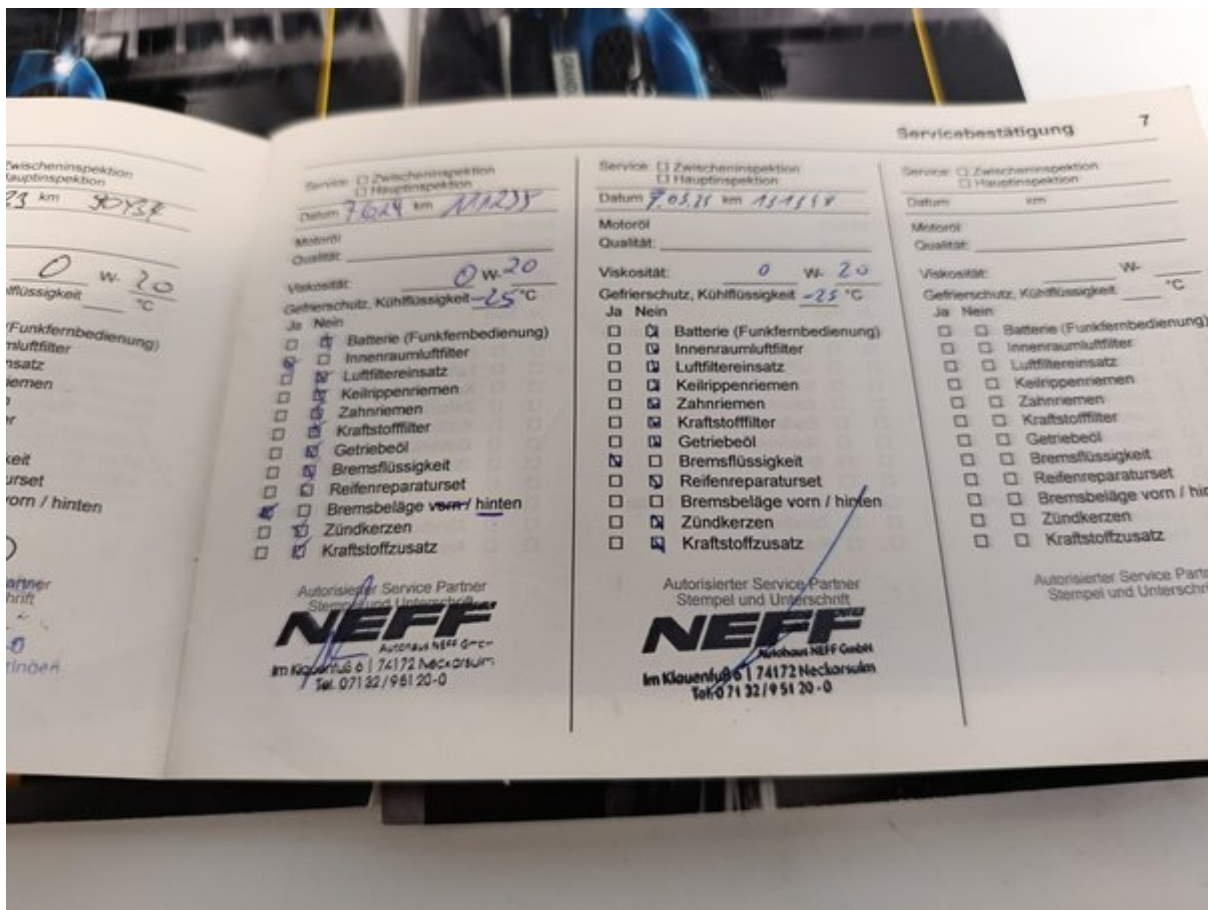 Servicebestätigung 7
Zwischeninspektion
Hauptinspektion
23 km 90437
0 W- 20
°C
(Funkfernbedienung)
orn / hinten
Service: Zwischeninspektion
Hauptinspektion
Datum 7.6.24 km 111238
Motoröl
Qualität:
Viskosität: 0 W- 20
Gefrierschutz, Kühlflüssigkeit -25 °C
Ja Nein
Batterie (Funkfernbedienung)
Innenraumluftfilter
Luftfiltereinsatz
Keilrippenriemen
Zahnriemen
Kraftstofffilter
Getriebeöl
Bremsflüssigkeit
Reifenreparaturset
Bremsbeläge vorn / hinten
Zündkerzen
Kraftstoffzusatz
Autorisierter Service Partner
Stempel und Unterschrift
NEFF
Autohaus NEFF GmbH
Im Klauenfuß 6 | 74172 Neckarsulm
Tel. 07132/95120-0
Service: Zwischeninspektion
Hauptinspektion
Datum 7.05.25 km
Motoröl
Qualität:
Viskosität: 0 W- 20
Gefrierschutz, Kühlflüssigkeit -25 °C
Ja Nein
Batterie (Funkfernbedienung)
Innenraumluftfilter
Luftfiltereinsatz
Keilrippenriemen
Zahnriemen
Kraftstofffilter
Getriebeöl
Bremsflüssigkeit
Reifenreparaturset
Bremsbeläge vorn / hinten
Zündkerzen
Kraftstoffzusatz
Autorisierter Service Partner
Stempel und Unterschrift
NEFF
Autohaus NEFF GmbH
Im Klauenfuß 6 | 74172 Neckarsulm
Tel. 07132/95120-0
Service: Zwischeninspektion
Hauptinspektion
Datum km
Motoröl
Qualität:
Viskosität: W-
Gefrierschutz, Kühlflüssigkeit °C
Ja Nein
Batterie (Funkfernbedienung)
Innenraumluftfilter
Luftfiltereinsatz
Keilrippenriemen
Zahnriemen
Kraftstofffilter
Getriebeöl
Bremsflüssigkeit
Reifenreparaturset
Bremsbeläge vorn / hin
Zündkerzen
Kraftstoffzusatz
Autorisierter Service Part
Stempel und Unterschri